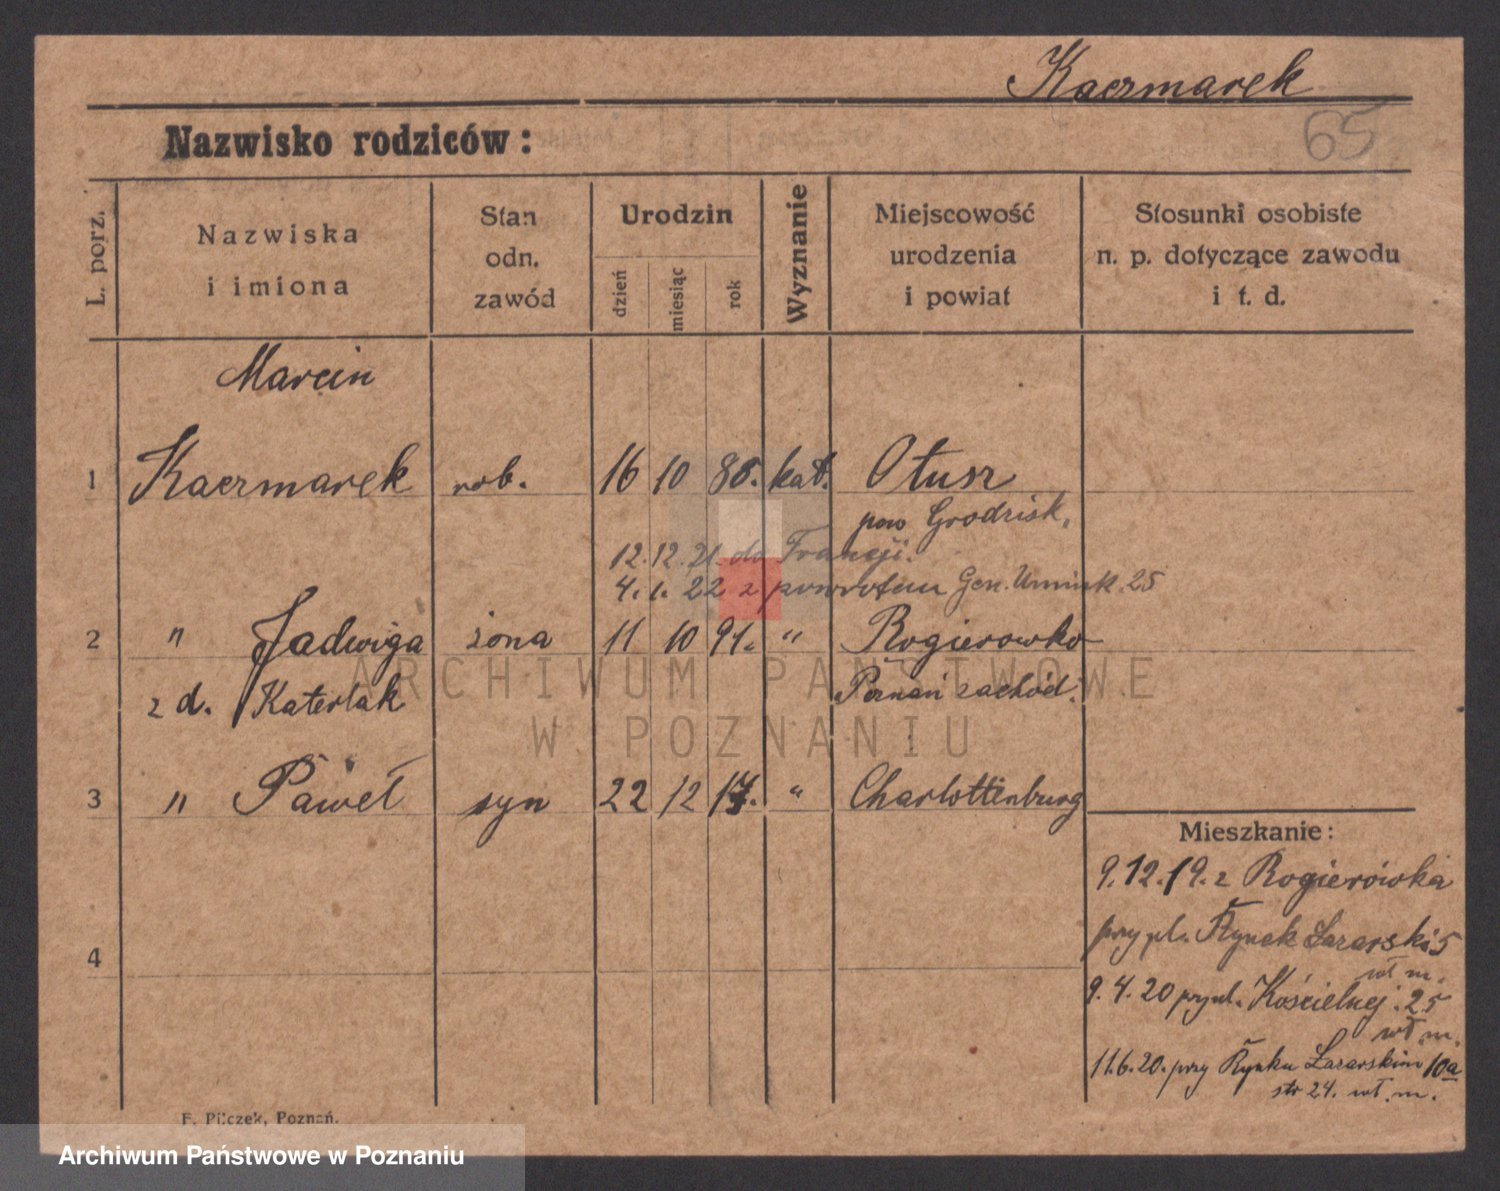 Kaczmarek
65
Nazwisko rodziców:
L. porz.
Nazwiska
i imiona
Stan
odn.
zawód
Urodzin
dzień
miesiąc
rok
Wyznanie
Miejscowość
urodzenia
i powiat
Stosunki osobiste
n. p. dotyczące zawodu
i t. d.
Marcin
1 Kaczmarek rob. 16 10 86. kat. Otusz
pow Grodzisk,
12.12.21. do Francji.
4. 1. 22 z powrotem Gen. Umińsk. 25
2 " Jadwiga żona 11 10 91. " Rogierowko
z d. Katerlak Poznań zachód.
3 " Paweł syn 22 12 17. " Charlottenburg
Mieszkanie:
9.12.19. z Rogierówka
przy pl. Rynek Łazarski 5
wł m.
4
9.4.20 przy ul. Kościelnej 25
wł. m.
11.6.20. przy Rynku Łazarskim 10a
str 24. wł. m.
F. Pilczek, Poznań.
ARCHIWUM PAŃSTWOWE
W POZNANIU
Archiwum Państwowe w Poznaniu